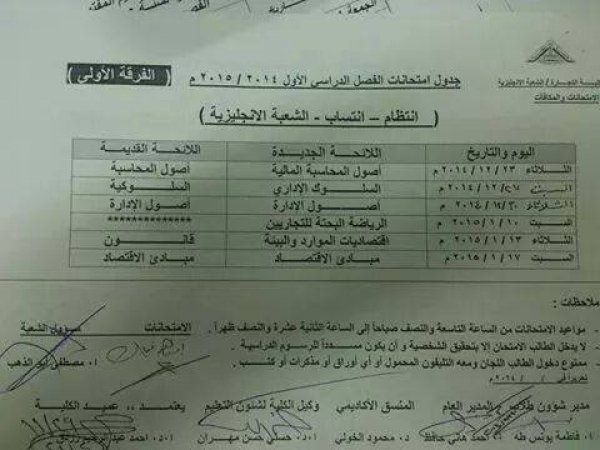 كلية التجارة / الشعبة الإنجليزية
الامتحانات والمكافآت
جدول امتحانات الفصل الدراسي الأول ٢٠١٤ / ٢٠١٥ م ( الفرقة الأولى )
( انتظام – انتساب - الشعبة الانجليزية )
اليوم والتاريخ اللائحة الجديدة اللائحة القديمة
الثلاثاء ٢٣ / ١٢ / ٢٠١٤ م أصول المحاسبة المالية أصول المحاسبة
السبت ٢٧ / ١٢ / ٢٠١٤ م السلوك الإداري السلوكية
الثلاثاء ٣٠ / ١٢ / ٢٠١٤ م أصول الإدارة أصول الإدارة
السبت ١٠ / ١ / ٢٠١٥ م الرياضة البحتة للتجاريين **************
الثلاثاء ١٣ / ١ / ٢٠١٥ م اقتصاديات الموارد والبيئة قانون
السبت ١٧ / ١ / ٢٠١٥ م مبادئ الاقتصاد مبادئ الاقتصاد
ملاحظات :
- مواعيد الامتحانات من الساعة التاسعة والنصف صباحاً إلى الساعة الثانية عشرة والنصف ظهراً .
- لا يدخل الطالب الامتحان إلا بتحقيق الشخصية و أن يكون مسدداً للرسوم الدراسية .
- ممنوع دخول الطالب اللجان ومعه التليفون المحمول أو أي أوراق أو مذكرات أو كتب .
الامتحانات مسئول الشعبة
أ. مصطفى أبو الذهب
مدير شؤون طلاب المدير العام المنسق الأكاديمي وكيل الكلية لشئون التعليم يعتمد .. عميد الكلية
أ. فاطمة يونس طه أ. أحمد هاني حافظ د. محمود الخولي أ.د. حسني حسن مهران أ.د. أحمد عبد الرحيم زردق